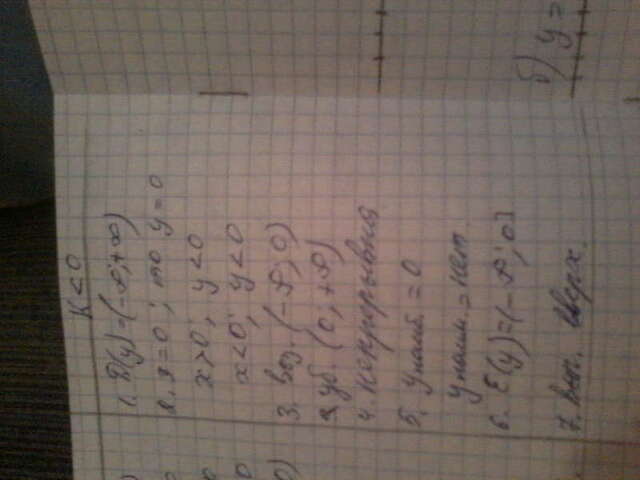 K < 0
1. D(y) = (-∞; +∞)
2. x = 0; то y = 0
x > 0; y < 0
x < 0; y < 0
3. воз. (-∞; 0)
уб. (0, +∞)
4. Непрерывна
5. y наиб. = 0
y наим. = нет
6. E(y) = (-∞; 0]
7. Вып. вверх.
б) y =